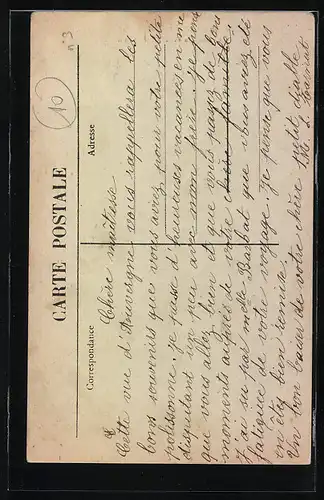 n°3
10
CARTE POSTALE
Correspondance
Adresse
Chère maîtresse
Cette vue d'Auvergne vous rappellera les
bons souvenirs que vous aviez pour votre petite
polissonne. Je passe d'heureuses vacances en me
disputant un peu avec mon frère. Je pense
que vous allez bien et que vous passez de bons
moments auprès de votre chère famille.
J'ai su par melle Barbat que vous avez été
fatiguée de votre voyage. Je pense que vous
en êtes bien remise.
Un bon baiser de votre chère petit diable